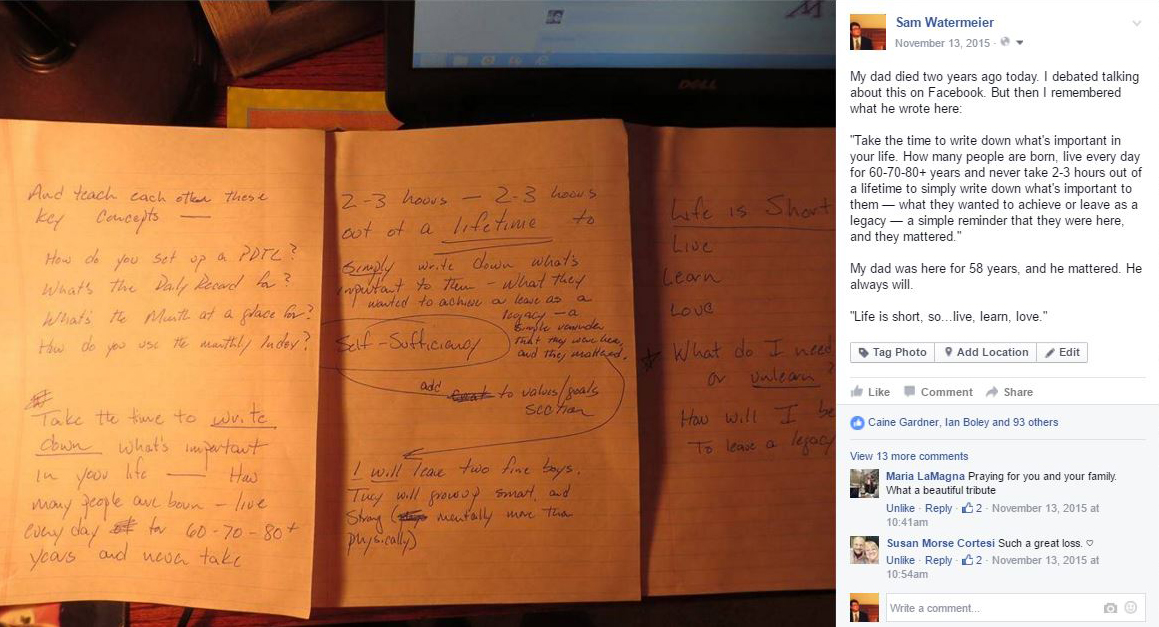 DELL
And teach each other these
Key Concepts —
How do you set up a PDTL?
What's the Daly Record for?
What's the Month at a glace for?
How do you use the monthly Index?
Take the time to write
down what's important
in your life — How
many people are born - live
every day for 60-70-80+
years and never take
2-3 hours — 2-3 hours
out of a lifetime to
simply write down what's
important to them - what they
wanted to achieve or leave as a
legacy - a
simple reminder
that they were here,
and they mattered.
Self-Sufficiency
add to values/goals
section
I will leave two fine boys.
They will grow up smart, and
strong (mentally more than
physically)
Life is Short
Live
Learn
Love
What do I need
or unlearn?
How will I be
To leave a legacy
Sam Watermeier
November 13, 2015 ·
My dad died two years ago today. I debated talking
about this on Facebook. But then I remembered
what he wrote here:
"Take the time to write down what's important in
your life. How many people are born, live every day
for 60-70-80+ years and never take 2-3 hours out of
a lifetime to simply write down what's important to
them — what they wanted to achieve or leave as a
legacy — a simple reminder that they were here,
and they mattered."
My dad was here for 58 years, and he mattered. He
always will.
"Life is short, so...live, learn, love."
Tag Photo Add Location Edit
Like Comment Share
Caine Gardner, Ian Boley and 93 others
View 13 more comments
Maria LaMagna Praying for you and your family.
What a beautiful tribute
Unlike · Reply · 2 · November 13, 2015 at
10:41am
Susan Morse Cortesi Such a great loss. ♡
Unlike · Reply · 2 · November 13, 2015 at
10:54am
Write a comment...